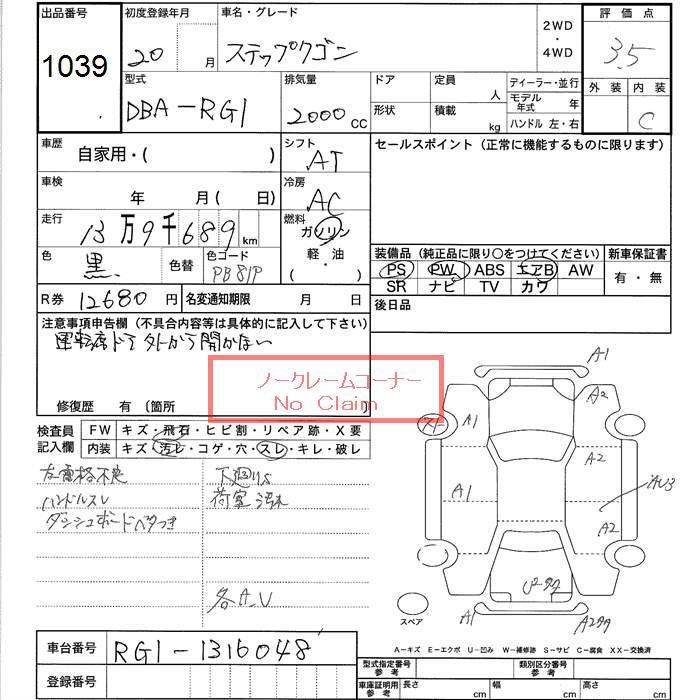 出品番号 初度登録年月 車名・グレード 2WD・4WD 評価点
1039 20 月 ステップワゴン 3.5
型式 排気量 ドア 定員 人 ディーラー・並行 外装 内装
DBA-RG1 2000 cc 形状 積載 kg モデル年式 年 C
ハンドル 左・右
車歴 自家用・( ) シフト AT セールスポイント (正常に機能するものに限ります)
車検 年 月 ( 日) 冷房 AC
走行 13万9千689 km 燃料 ガソリン
軽・油
・( )
色 黒 色替 色コード PB81P
装備品 (純正品に限り○をつけてください) 新車保証書
PS PW ABS エアB AW 有・無
SR ナビ TV カワ
R券 12680円 名変通知期限 月 日 後日品
注意事項申告欄 (不具合内容等は具体的に記入して下さい)
運転席ドア外から開かない
ノークレームコーナー
No Claim
修復歴 有 〔箇所
検査員記入欄 FW キズ・飛石・ヒビ割・リペア跡・X要
内装 キズ・汚レ・コゲ・穴・スレ・キレ・破レ
左電格不良 下廻りS
ハンドルスレ 荷室汚れ
ダッシュボードベタつき
各A.U
A1
A1 A2
A2
A1 AU3
A2
A1
スペア
A-キズ E-エクボ U-凹み W-補修跡 S-サビ C-腐食 XX-交換済
車台番号 RG1-1316048
登録番号
型式指定番号 参考 類別区分番号 参考
車庫証明用 参考 長さ cm 幅 cm 高さ cm